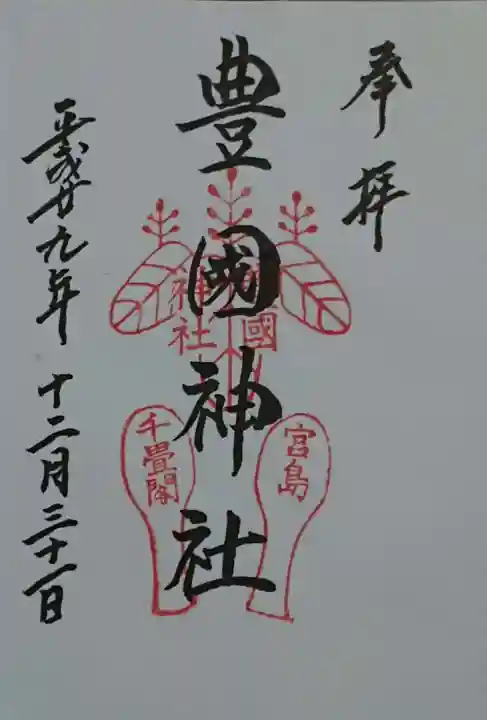 奉拝
豊國神社
平成廿九年 十二月三十一日
國
神社
宮島
千畳閣